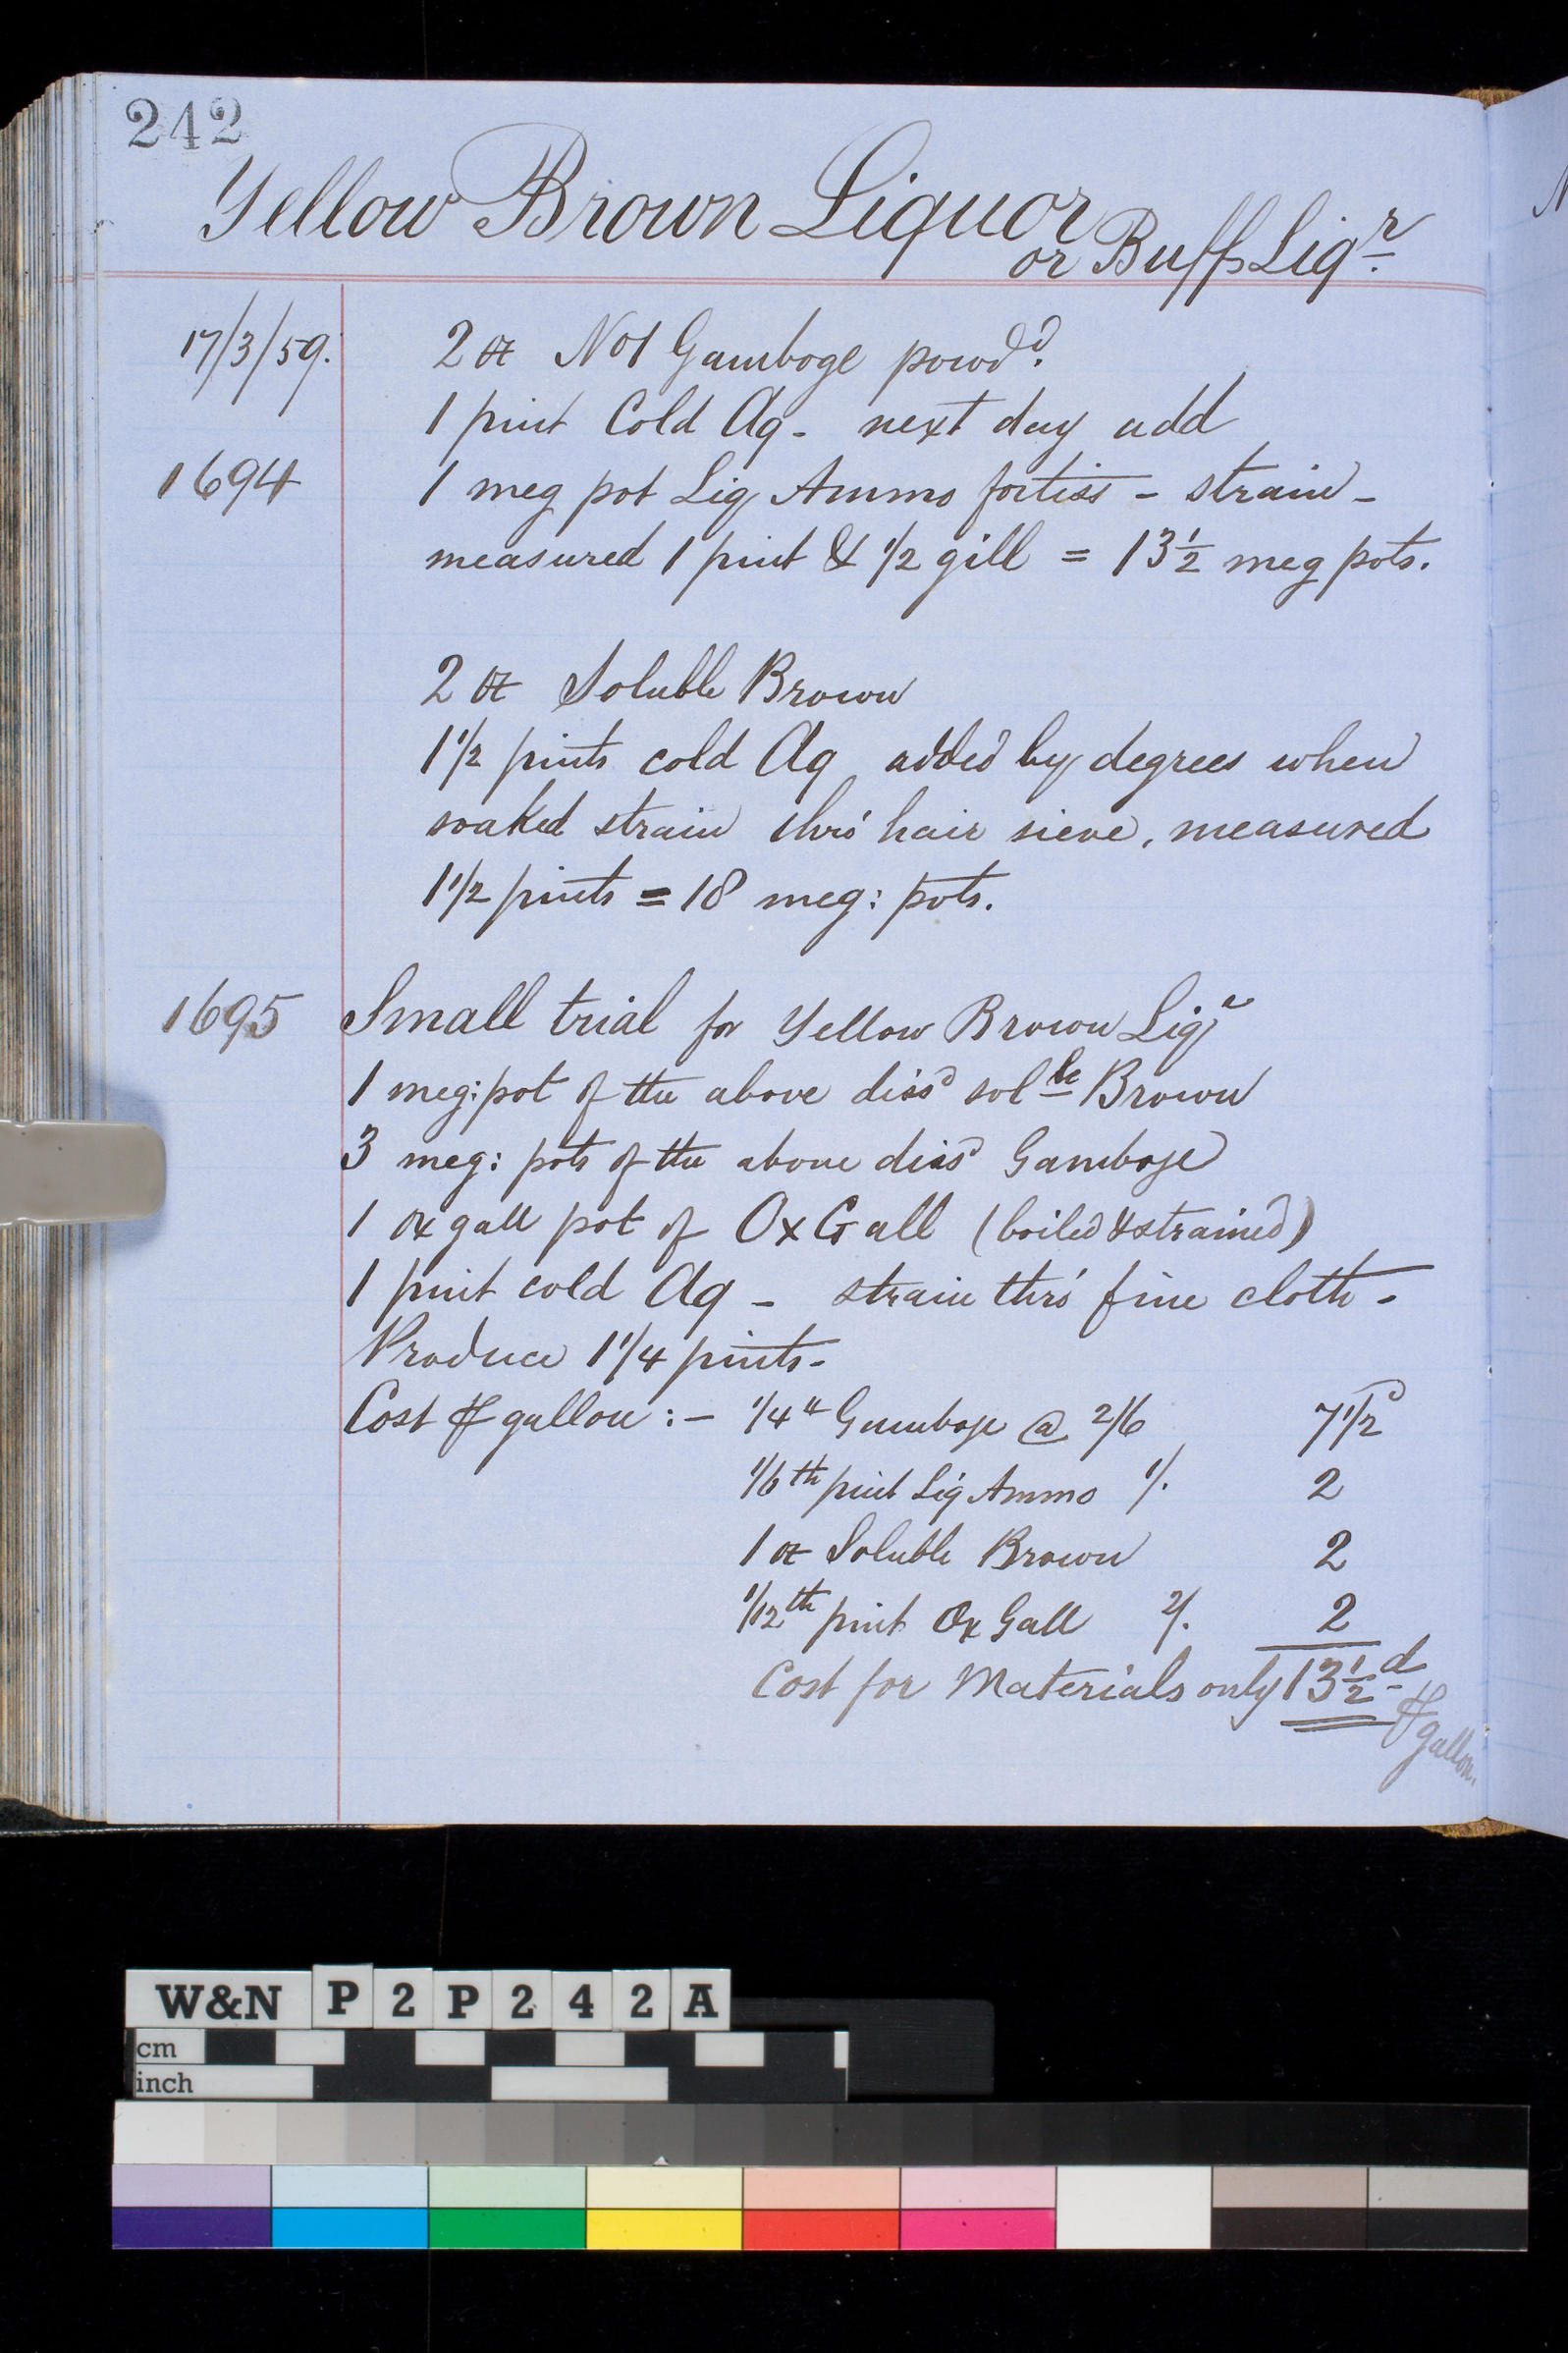 242
Yellow Brown Liquor
or Buff Liqr.
17/3/59.
2 oz No 1 Gamboge powdd.
1 pint Cold Aq - next day add
1694
1 meg pot Liq Ammo fortiss - strain -
measured 1 pint & 1/2 gill = 13 1/2 meg pots.
2 oz Soluble Brown
1 1/2 pints cold Aq added by degrees when
soaked strain thro' hair sieve, measured
1 1/2 pints = 18 meg: pots.
1695
Small trial for Yellow Brown Liqr
1 meg: pot of the above dissd solble Brown
3 meg: pots of the above dissd Gamboge
1 ox gall pot of Ox Gall (boiled & strained)
1 pint cold Aq - strain thro' fine cloth -
Produce 1 1/4 pints -
Cost ⅌ gallon :- 1/4 lb Gamboge @ 2/6 7 1/2d
1/6th pint Liq Ammo 1/. 2
1 oz Soluble Brown 2
1/12th pint Ox Gall 2/. 2
Cost for Materials only 13 1/2 d
⅌ gallon.
W&N P 2 P 2 4 2 A
cm
inch